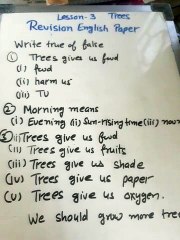 Lesson-3 Trees
Revision English Paper
Write true of false
① Trees gives us food
(i) food
(ii) harm us
(iii) TV
② Morning means
(i) Evening (ii) Sun-rising time (iii) noon
③ (i) Trees give us food
(ii) Trees give us fruits
(iii) Trees give us shade
(iv) Trees give us paper
(v) Trees give us oxygen.
We should grow more tree